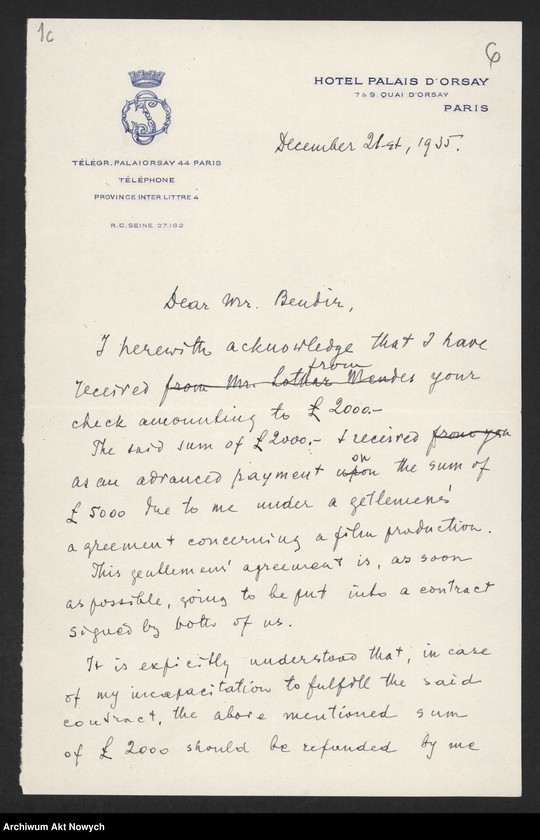 1c
6
HOTEL PALAIS D'ORSAY
7 & 9 QUAI D'ORSAY
PARIS
TÉLÉGR. PALAIORSAY 44 PARIS
TÉLÉPHONE
PROVINCE INTER LITTRÉ 4
R.C. SEINE 27.192
December 21-st, 1935.
Dear Mr. Bendir,
I herewith acknowledge that I have
from
received from Mr. Lothar Mendes your
check amounting to £ 2000.-
The said sum of £ 2000.- I received from you
on
as an advanced payment upon the sum of
£ 5000 due to me under a getlemens'
agreement concerning a film production.
This gentlemens' agreement is, as soon
as possible, going to be put into a contract
signed by both of us.
It is expicitly understood that, in case
of my incapacitation to fulfill the said
contract, the above mentioned sum
of £ 2000 should be refunded by me
Archiwum Akt Nowych